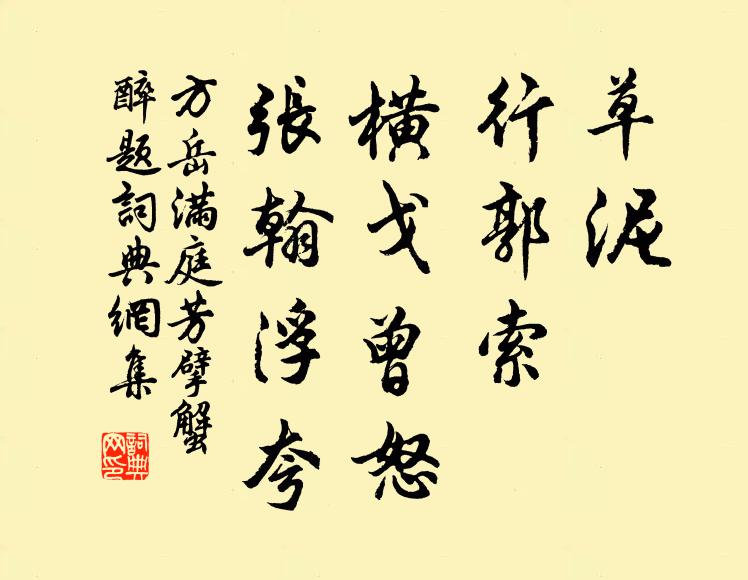 草泥
行郭索
橫戈曾怒
張翰浮夸
方岳滿庭芳擘蟹
醉題詞典網集
詞典網印